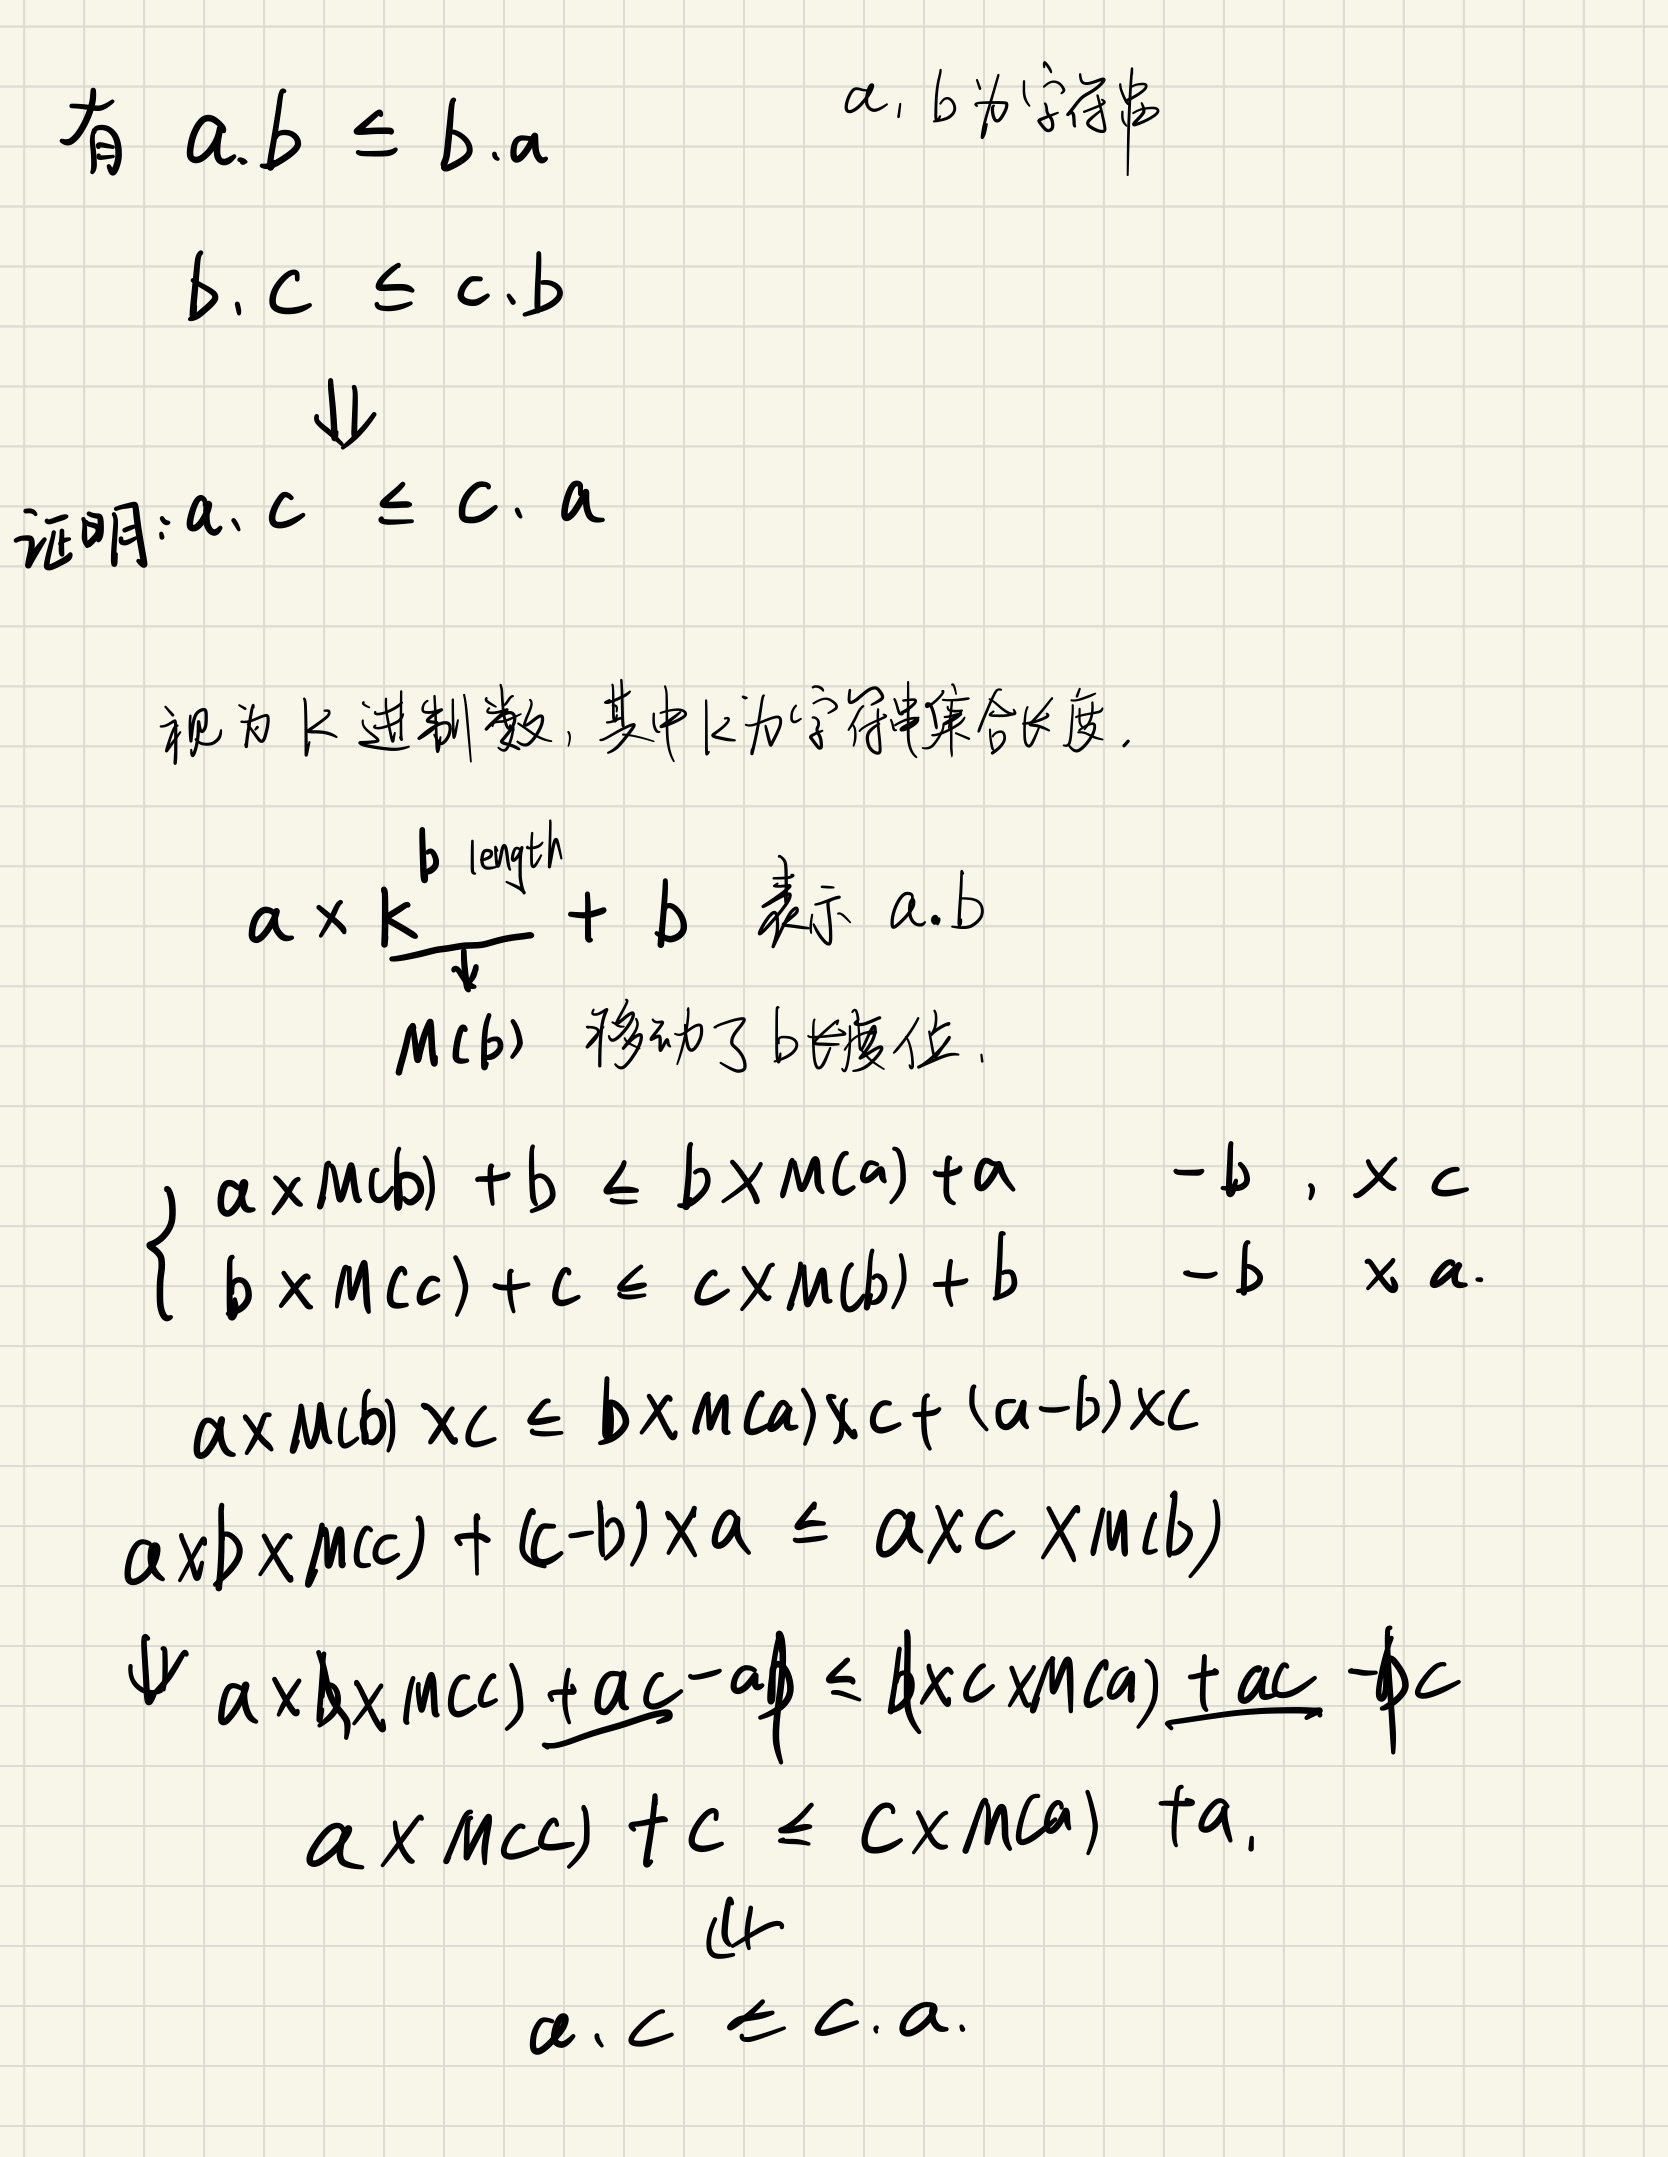 有 a.b ≤ b.a
a, b为字符串
b.c ≤ c.b
⇓
证明: a.c ≤ c.a
视为 K 进制数, 其中 K为字符串集合长度.
b length
a × k + b 表示 a.b
↓
M(b) 移动了 b长度位.
a × M(b) + b ≤ b × M(a) + a -b , × c
b × M(c) + c ≤ c × M(b) + b -b × a.
a × M(b) × c ≤ b × M(a) × c + (a-b) × c
a × b × M(c) + (c-b) × a ≤ a × c × M(b)
⇓ a × b × M(c) + ac - ab ≤ b × c × M(a) + ac - bc
a × M(c) + c ≤ c × M(a) + a.
⇓
a.c ≤ c.a.